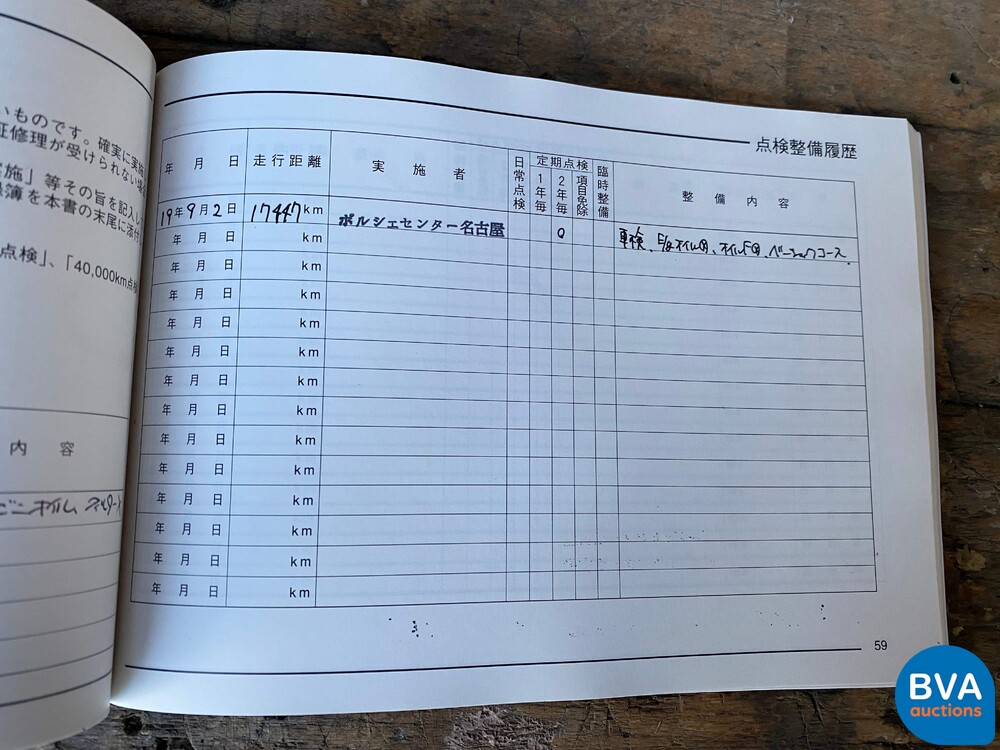 いものです。確実に実施
証修理が受けられない場合
実施」等その旨を記入し
簿を本書の末尾に添付
点検」、「40,000km点検
内 容
点検整備履歴
年 月 日 走行距離 実施者 日常点検 定期点検 1年毎 2年毎 項目免除 臨時整備 整備内容
19年9月2日 17447km ポルシェセンター名古屋 0 車検、
年 月 日 km
年 月 日 km
年 月 日 km
年 月 日 km
年 月 日 km
年 月 日 km
年 月 日 km
年 月 日 km
年 月 日 km
年 月 日 km
年 月 日 km
年 月 日 km
年 月 日 km
59
BVA
auctions